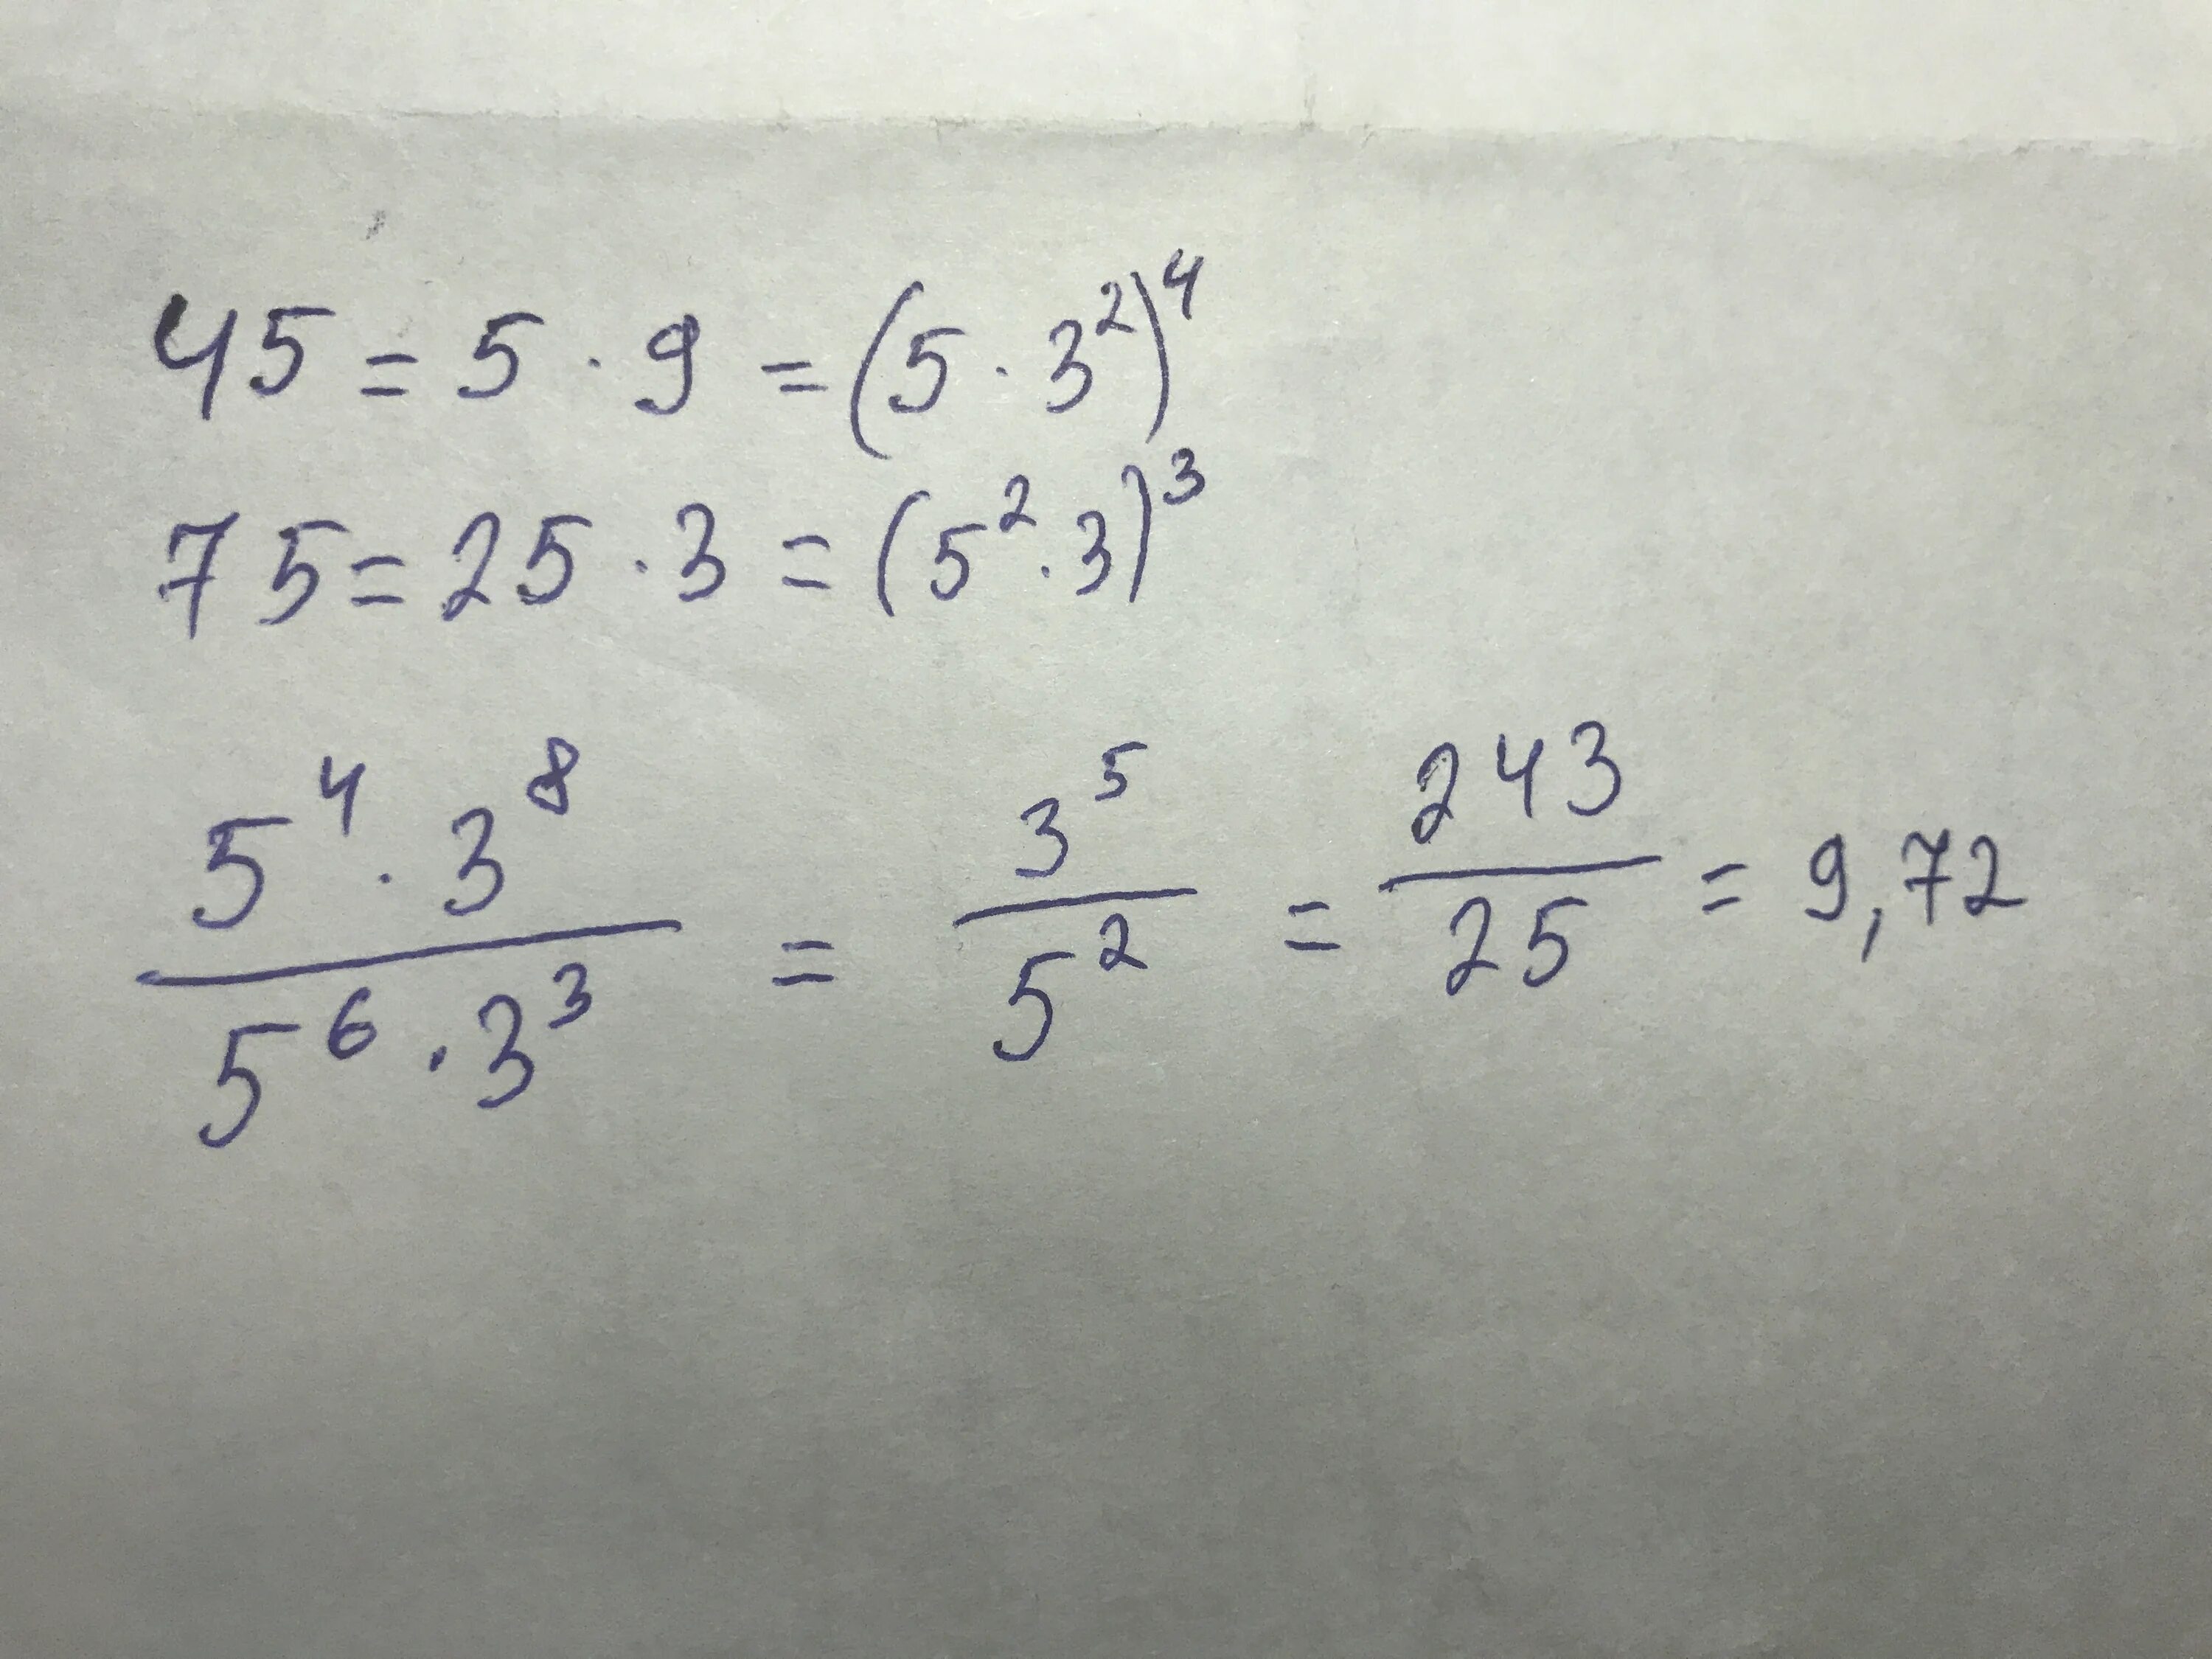 45 = 5 · 9 = (5 · 3²)⁴
75 = 25 · 3 = (5² · 3)³
5⁴ · 3⁸ / 5⁶ · 3³ = 3⁵ / 5² = 243 / 25 = 9,72